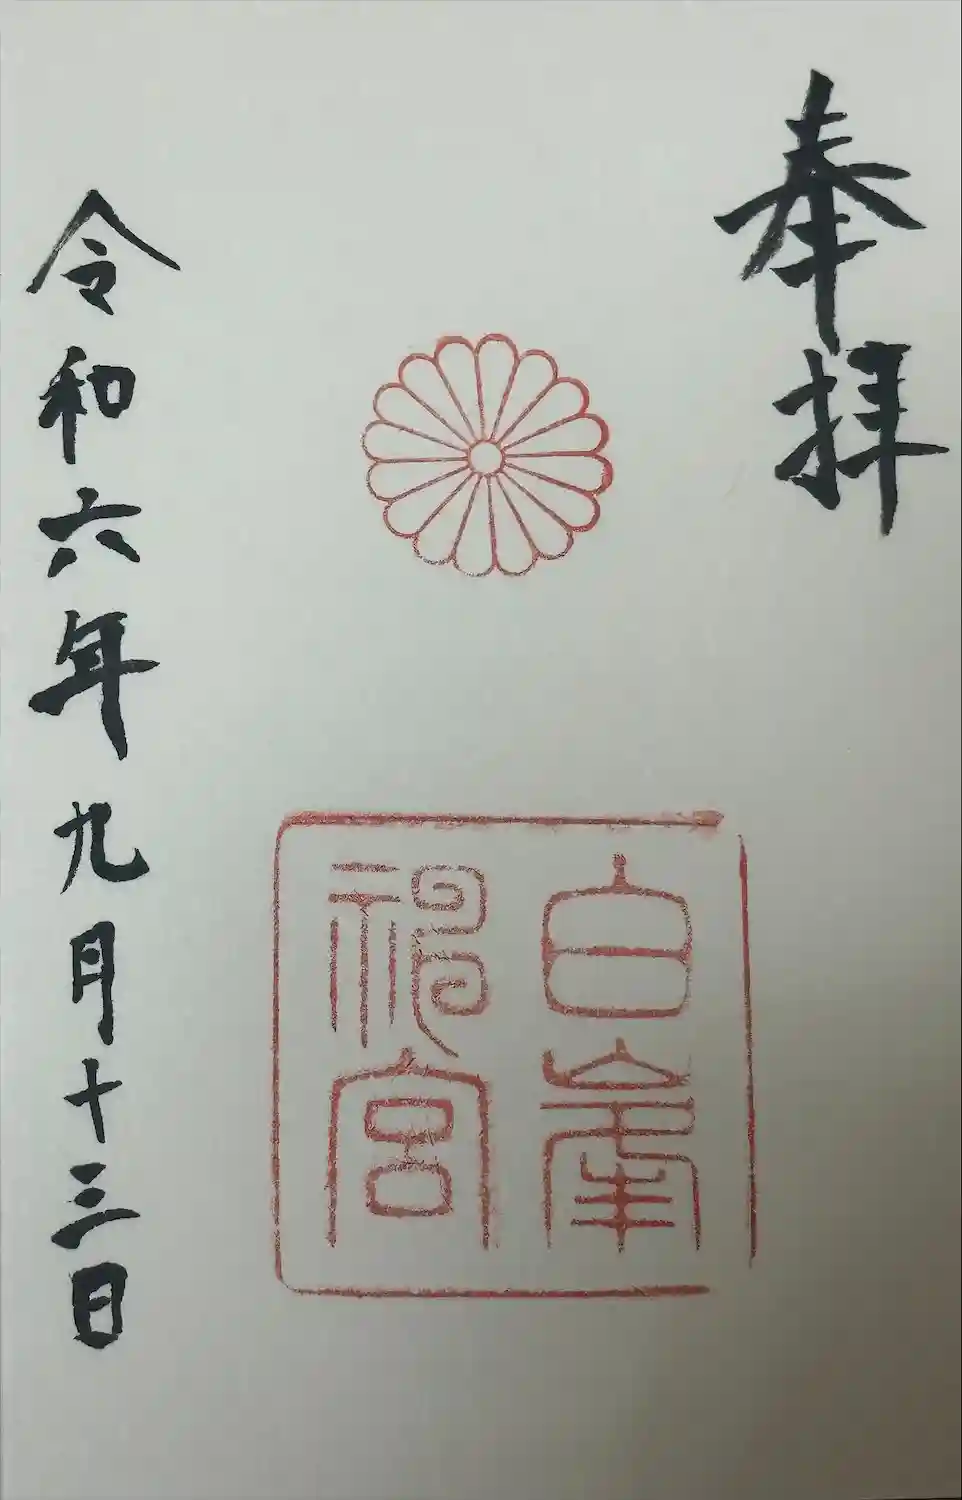 奉拝
白峯神宮
令和六年九月十三日